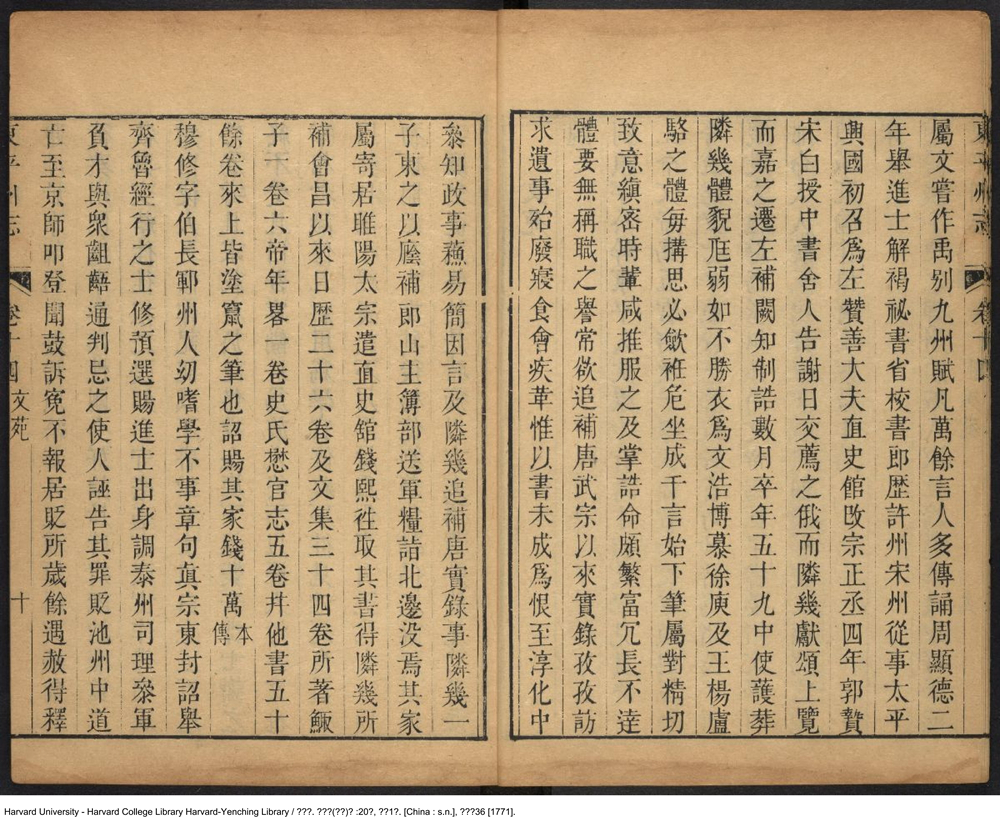 東平州志
卷十四
屬文嘗作禹别九州賦凡萬餘言人多傳誦周顯德二
年舉進士解褐祕書省校書郎歷許州宋州從事太平
興國初召爲左贊善大夫直史館改宗正丞四年郭贄
宋白授中書舍人告謝日交薦之俄而隣幾獻頌上覽
而嘉之遷左補闕知制誥數月卒年五十九中使護葬
隣幾體貌尫弱如不勝衣爲文浩博慕徐庾及王楊盧
駱之體每搆思必歛袵危坐成千言始下筆屬對精切
致意縝密時輩咸推服之及掌誥命頗繁富冗長不逹
體要無稱職之譽常欲追補唐武宗以來實錄孜孜訪
求遺事殆廢寢食會疾革惟以書未成爲恨至淳化中
叅知政事蘇易簡因言及隣幾追補唐實錄事隣幾一
子東之以廕補郎山主簿部送軍糧詣北邊没焉其家
屬寄居睢陽太宗遣直史舘錢熙徃取其書得隣幾所
補會昌以來日歷二十六卷及文集三十四卷所著鯫
子一卷六帝年畧一卷史氏懋官志五卷幷他書五十
餘卷來上皆塗竄之筆也詔賜其家錢十萬本傳
穆修字伯長鄆州人幼嗜學不事章句眞宗東封詔舉
齊魯經行之士修預選賜進士出身調泰州司理叅軍
負才與衆齟齬通判忌之使人誣告其罪貶池州中道
亡至京師叩登聞鼓訴寃不報居貶所歲餘遇赦得釋
東平州志
卷十四
文苑
十
Harvard University - Harvard College Library Harvard-Yenching Library / ???. ???(??)? :20?, ??1?. [China : s.n.], ???36 [1771].